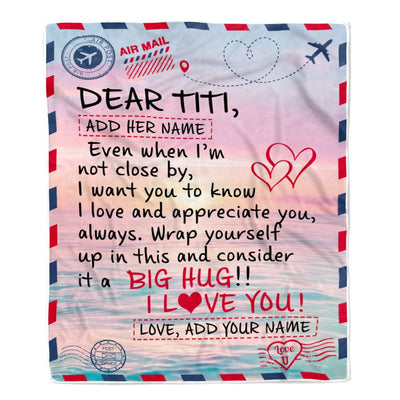 AIR MAIL
DEAR TITI,
ADD HER NAME
Even when I'm
not close by,
I want you to know
I love and appreciate you,
always. Wrap yourself
up in this and consider
it a BIG HUG!!
I LOVE YOU!
LOVE, ADD YOUR NAME
Love
U